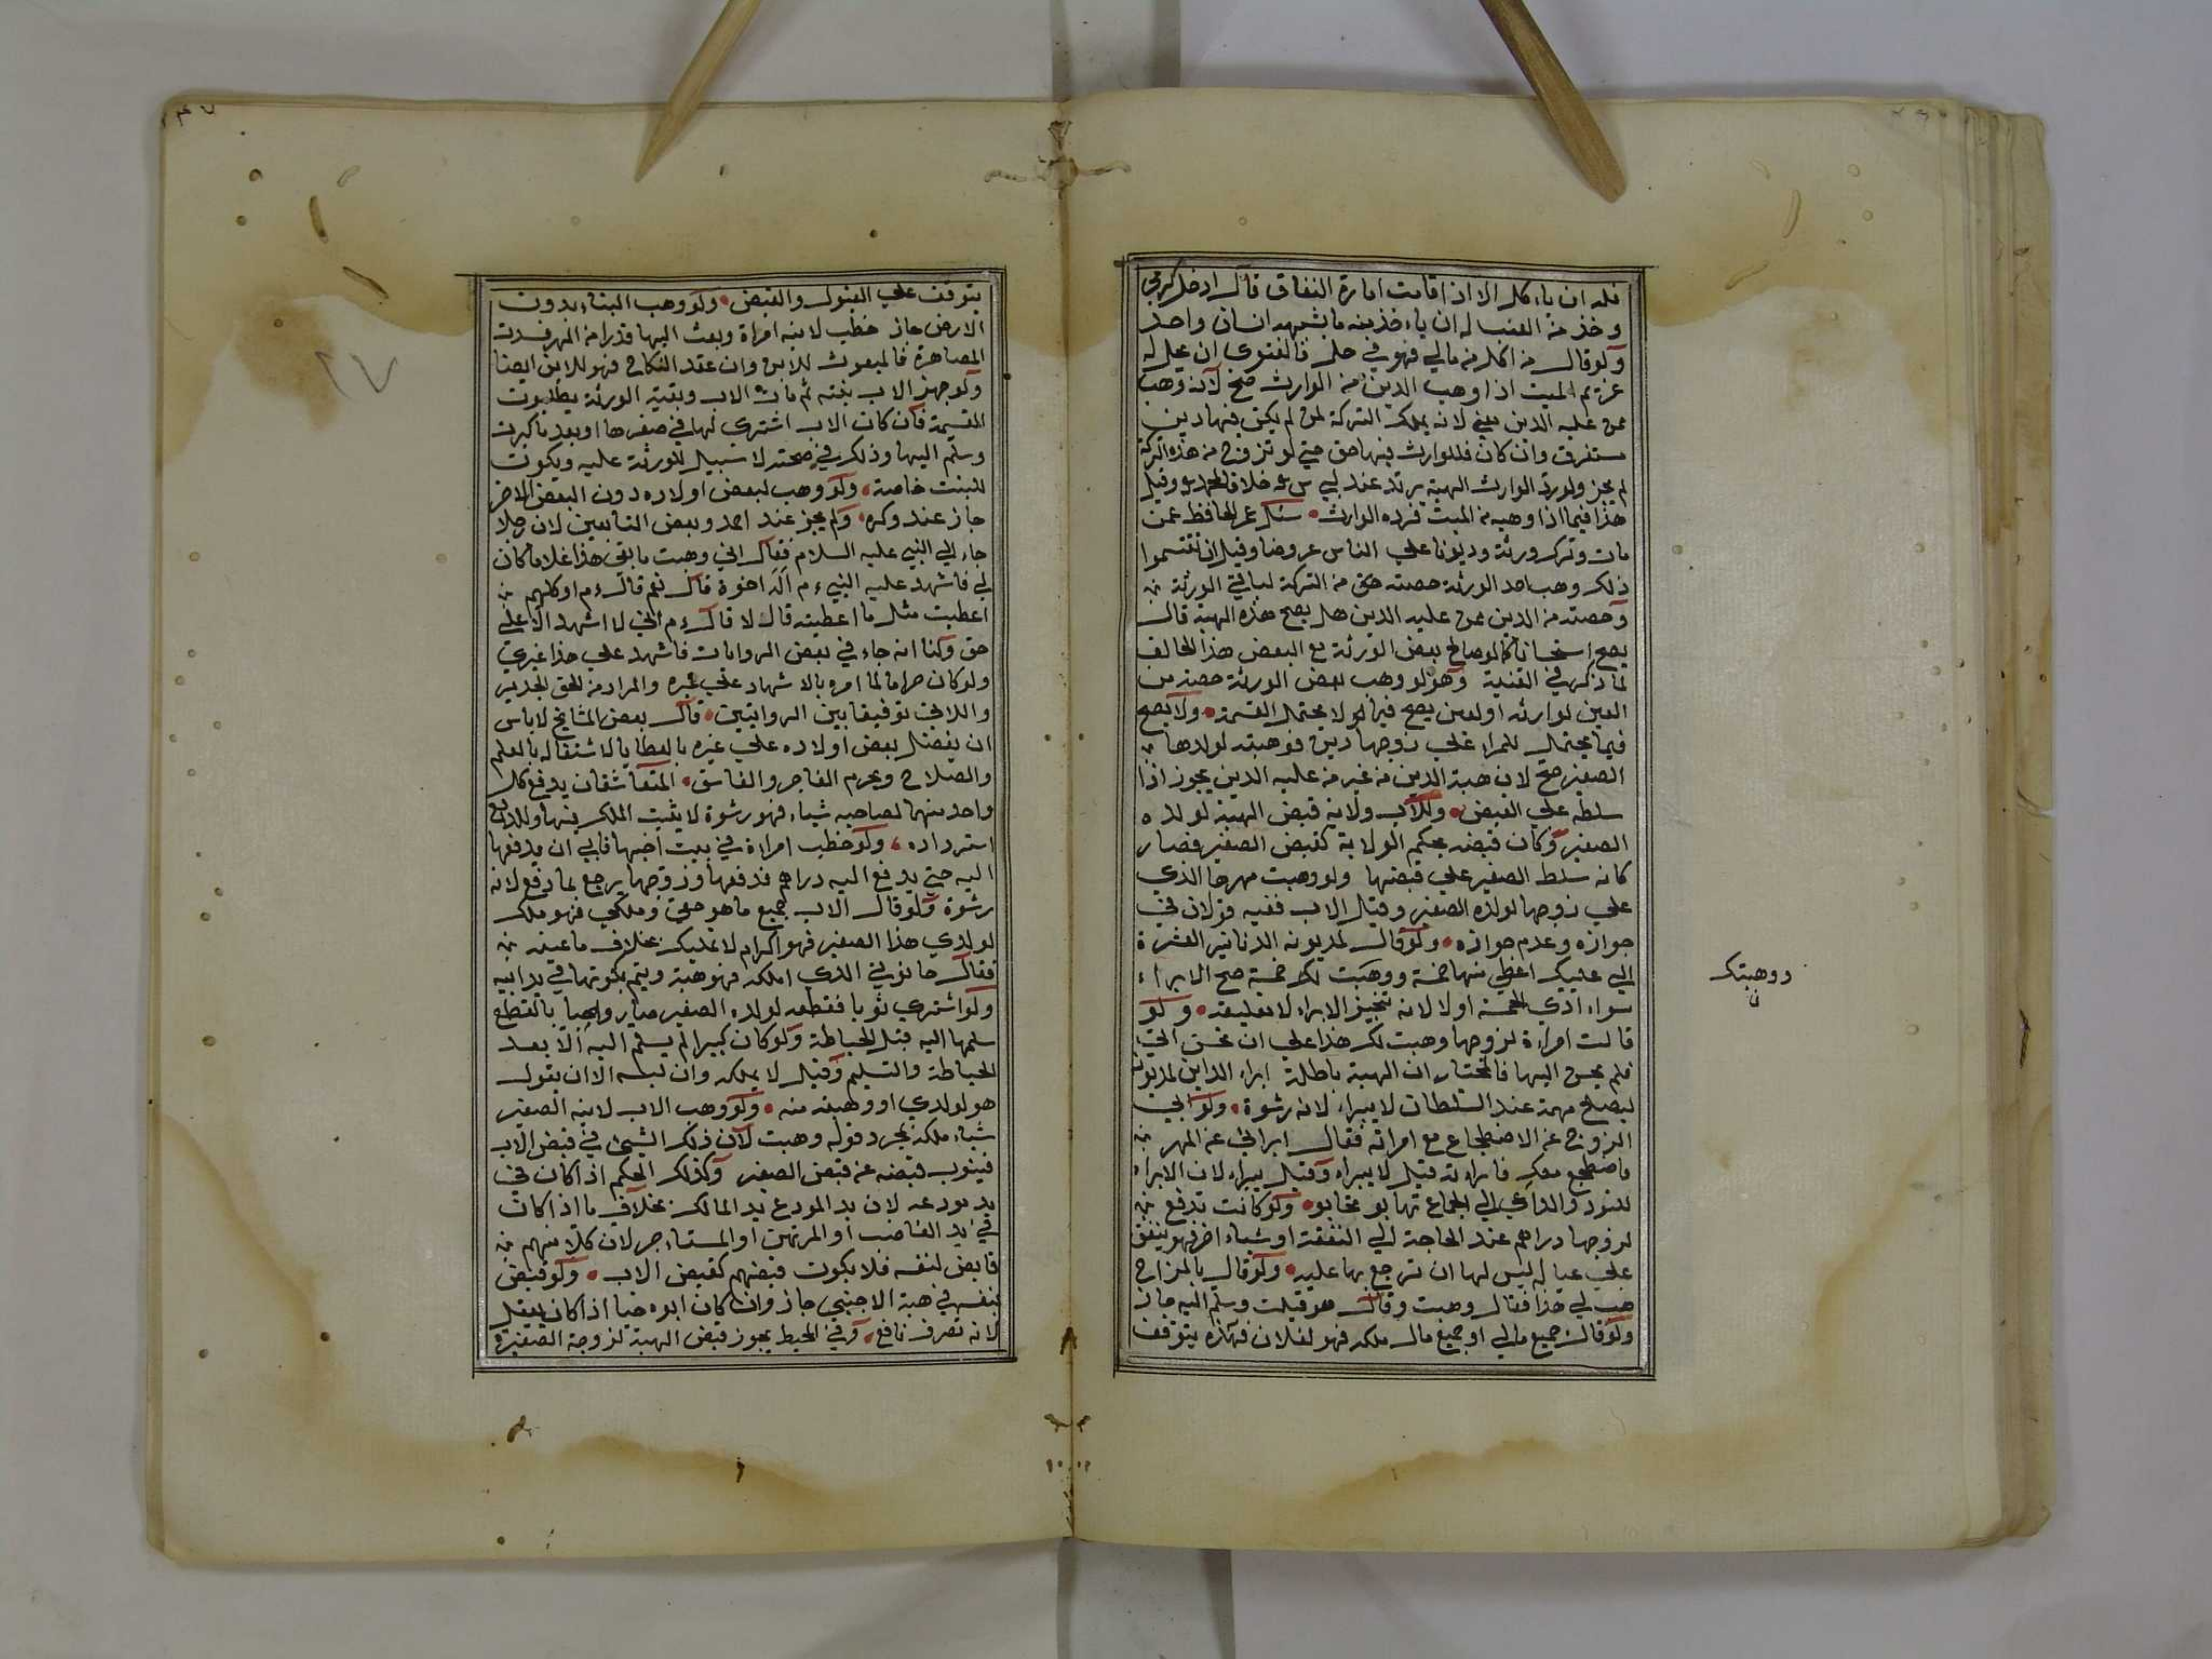 فله ان ياءكل الا اذا قامت امارة النفاق قال ادخل كرمي
وخذ من العنب له ان ياءخذ منه ما يشبع انسان واحد
ولو قال من اكل من مالي فهو في حل فالفتوى ان يحل له
غريم الميت اذا وهب الدين من الوارث صح لانه وهب
ممن عليه الدين يعني لانه يملك التركة لمن لم يكن فيها دين
مستغرق وان كان فللوارث فيها حق حتي لو تزوج من هذه التركة
لم يجز ولو رد الوارث الهبة يرتد عند خلافا لمحمد وقيل
هذا فيما اذا وهبه من الميت فرده الوارث سئل عمر الحافظ عمن
مات وترك ورثة وديونا علي الناس عروضا وقبل ان تقسموا
ذلك وهب احد الورثة حصته من التركة لباقي الورثة
وحصته من الدين ممن عليه الدين هل يصح هذه الهبة قال
يصح استحسانا كما لو صالح بعض الورثة مع البعض هذا الخالف
لما ذكر في القنية وهو لو وهب بعض الورثة حصته من
العين لوارثه او لغيره يصح فيما لو لا يحتمل القسمة ولا يصح
فيما يحتمل للمراة علي زوجها دين فوهبته لولدها
الصغير صح لان هبة الدين من غير من عليه الدين يجوز اذا
سلطه علي القبض وللاب ولاية قبض الهبة لولده
الصغير وكان قبضه بحكم الولاية كقبض الصغير فصار
كانه سلط الصغير علي قبضها ولو وهبت مهرها الذي
علي زوجها لولده الصغير وقبل الاب ففيه قولان في
جوازه وعدم جوازه ولو قال لمديونه الدنانير العشرة
الي عليك اعطي منها خمسة ووهبت لك خمسة صح الابراء
سواء ادي الخمسة اولا لانه تنجيز الابراء لا تعليقه ولو
قالت امراءة لزوجها وهبت لك هذا علي ان تحسن الي
فلم يحسن اليها فالمختار ان الهبة باطلة ابراء الداين لمديونه
ليصلح مهمة عند السلطان لا يبراء لانه رشوة ولو ابي
الزوج عن الاضطجاع مع امراته فقال ابرائي عن المهر
فاضطجع معك فابراءته قيل لا يبراء وقيل يبراء لان الابراء
للتودد والداعي الي الجماع تهابوا تحابوا ولو كانت تدفع
لزوجها دراهم عند الحاجة الي النفقة او شياء اخر فهو ينفق
علي عياله ليس لها ان ترجع بها عليه ولو قال بالمزاح
هب لي هذا فقال وهبت وقال هو قبلت وسلم اليه جاز
ولو قال جميع مالي او جميع مال ملكه فهو لفلان فهذه يتوقف
ووهبتك
ن
يتوقف علي القبول والقبض ولو وهب البناء بدون
الارض جاز خطب لابنه امراة وبعث اليها قدرا من المهر فسدت
المصاهرة فالمبعوث للابن وان عقد النكاح فهو للابن ايضا
ولو جهز الاب بنته ثم مات الاب وبقية الورثة يطلبون
القسمة فان كان الاب اشتري لها في صغرها او بعد ما كبرت
وسلم اليها وذلك في صحته لا سبيل للورثة عليه ويكون
للبنت خاصة ولو وهب لبعض اولاده دون البعض الاخر
جاز عند وكره ولم يجز عند احمد وبعض التابعين لان رجلا
جاء الي النبي عليه السلام فقال اني وهبت ما بقي هذا غلاما كان
لي فاشهد عليه النبي ءم اله اخوة قال نعم قال ءم او كلهم
اعطيت مثل ما اعطيته قال لا قال ءم اني لا اشهد الا علي
حق ولنا انه جاء في بعض الروايات فاشهد علي هذا غيري
ولو كان حراما لما امره بالاشهاد علي غيره والمراد من الحق الجدير
واللائق توفيقا بين الروايتين قال بعض المشايخ لا باس
ان يفضل بعض اولاده علي غيره بالعطايا لاشتغاله بالعلم
والصلاح ويحرم الفاجر والفاسق المتعاشقان يدفع كل
واحد منهما لصاحبه شياء فهو رشوة لا يثبت الملك فيها وللدافع
استرداده ولو خطب امراءة في بيت اخيها فابي ان يدفعها
اليه حتي يدفع اليه دراهم فدفعها وتزوجها يرجع بما دفع لانه
رشوة ولو قال الاب جميع ما هو حقي وملكي فهو ملك
لولدي هذا الصغير فهو اكرام لا تمليك بخلاف ما عينه
فقال حانوتي الذي املكه فهو هبة ويتم بكونها في يد ابيه
ولو اشتري ثوبا فقطعه لولده الصغير صار واهبا بالقطع
سلمها اليه قبل الخياطة ولو كان كبيرا لم يسلم اليه الا بعد
الخياطة والتسليم وقيل لا يملكه وان لبسه الا ان يقول
هو لولدي او وهبته منه ولو وهب الاب لابنه الصغير
شياء ملكه بمجرد قوله وهبت لان ذلك الشيئ في قبض الاب
فينوب قبضه عن قبض الصغير وكذلك الحكم اذا كان في
يد مودعه لان يد المودع يد المالك بخلاف ما اذا كان
في يد الغاصب او المرتهن او المستاءجر لان كلا منهم
قابض لنفسه فلا يكون قبضهم كقبض الاب ولو قبض
بنفسه في هبة الاجنبي جاز وان كان ابوه حيا اذا كان يعقل
لانه تصرف نافع وفي المحيط يجوز قبض الهبة لزوجة الصغيرة